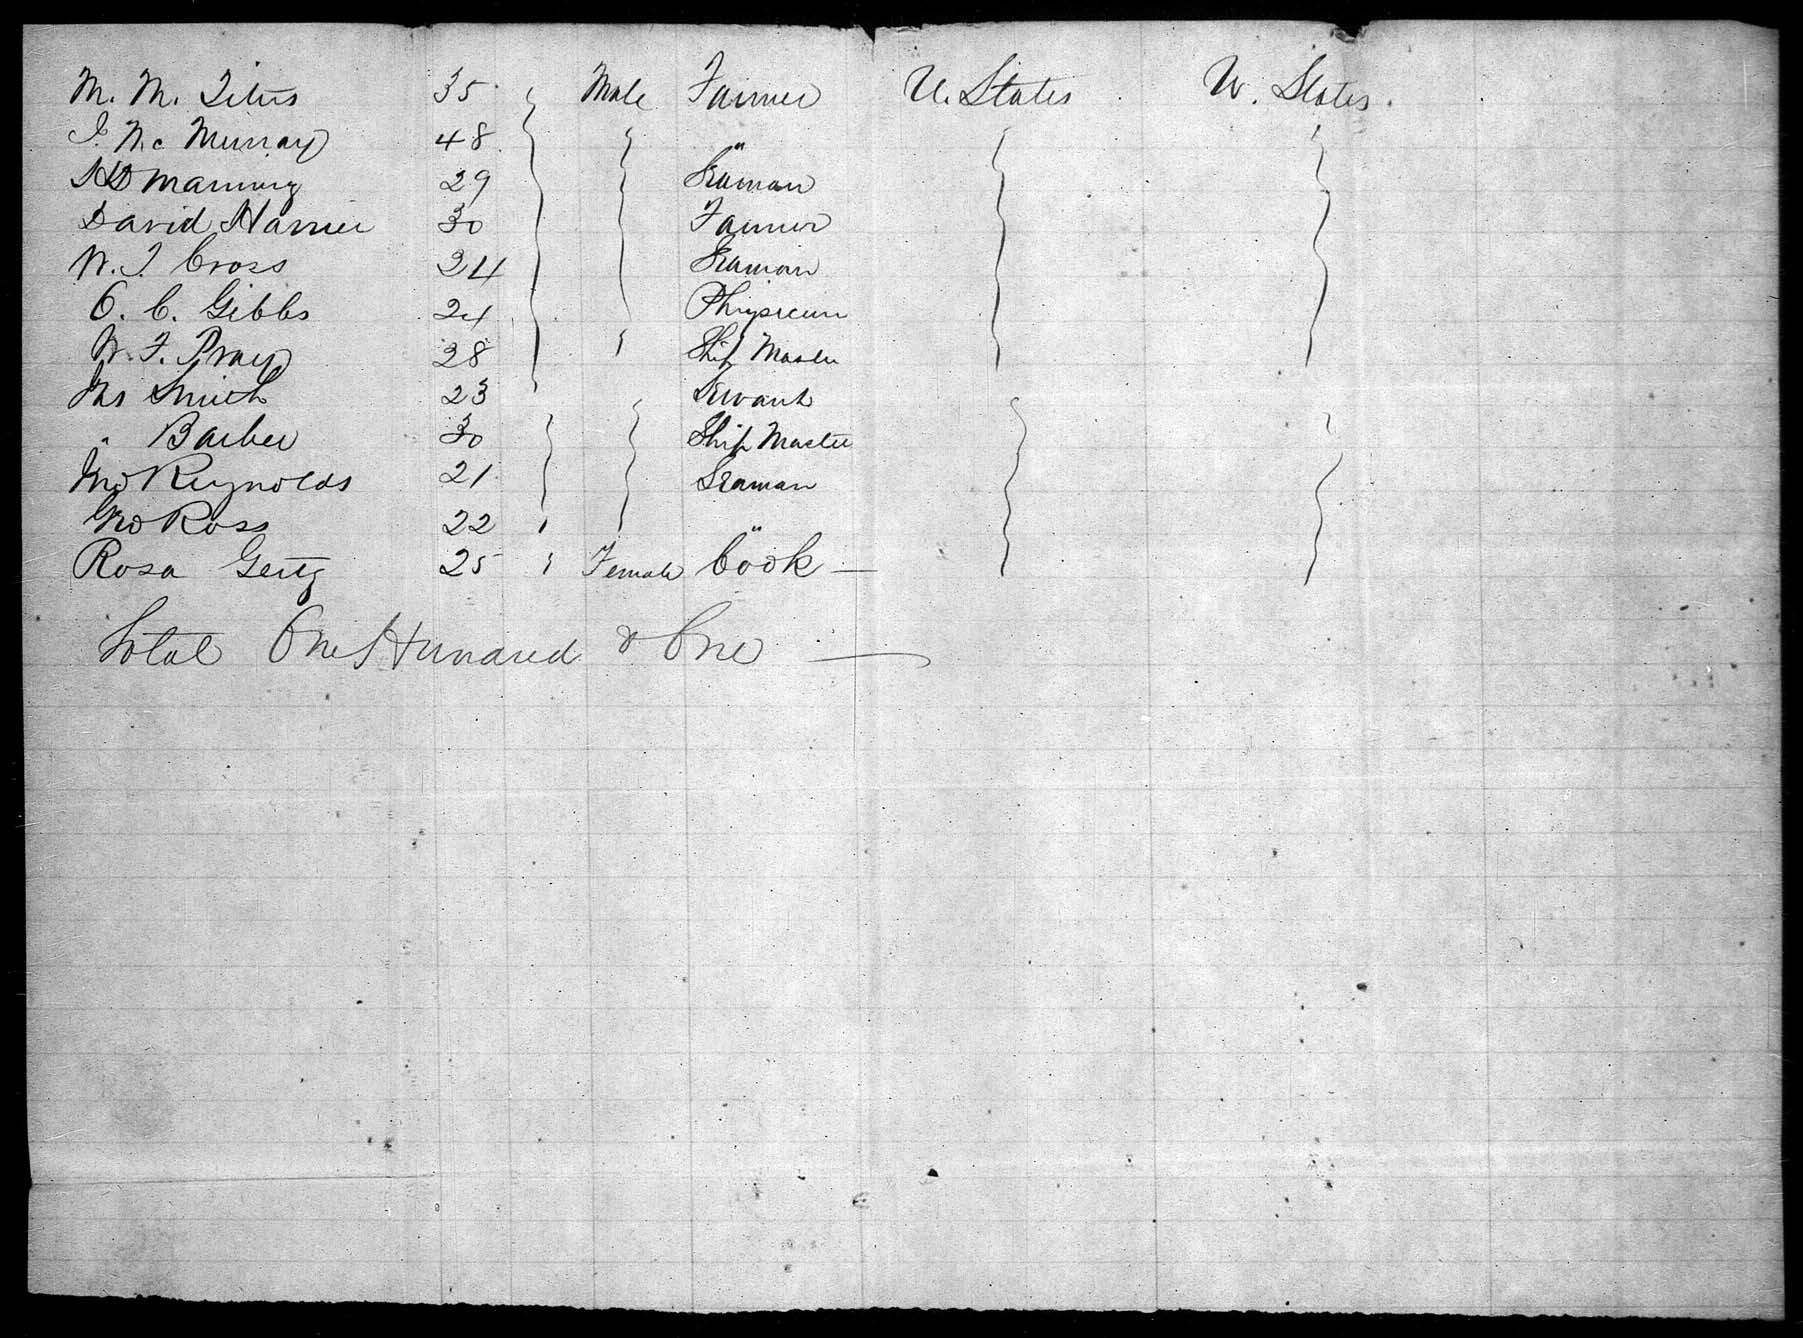 M. M. Titus 35 Male Farmer U. States W. States.
J. Mc Murray 48 "
Manning 29 Seaman
David Harrier 30 Farmer
W. J. Cross 24 Seaman
O. C. Gibbs 24 Phiysician
W. F. Pray 28 Ship Master
Jas Smith 23 Servant
" Barber 30 Ship Master
Jno Reynolds 21 Seaman
Geo Ross 22 "
Rosa 25 Female Cook —
Total One Hundred & One —